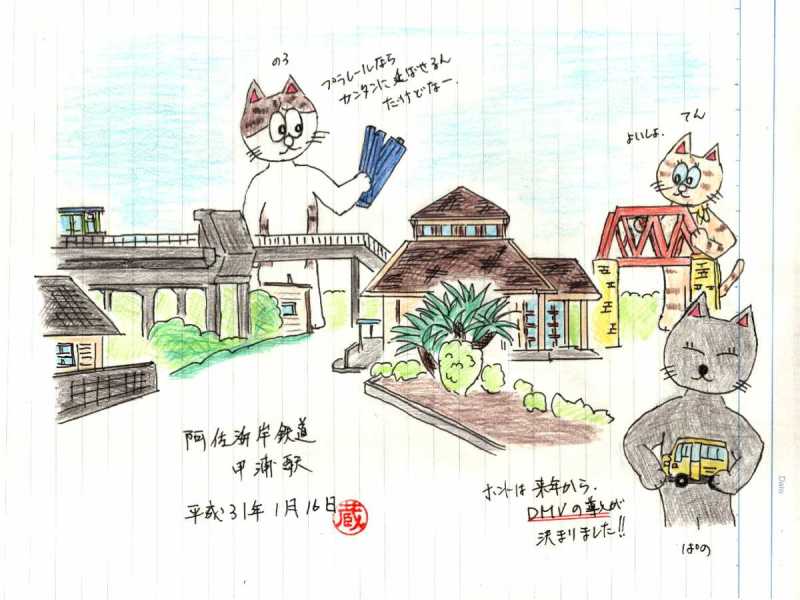 のろ
プラレールなら
カンタンに延ばせるん
だけどなー.
てん
よいしょ.
阿佐海岸鉄道
甲浦駅
平成31年1月16日
蔵
ホントは来年から.
DMVの導入が
決まりました!!
ぱの
Date